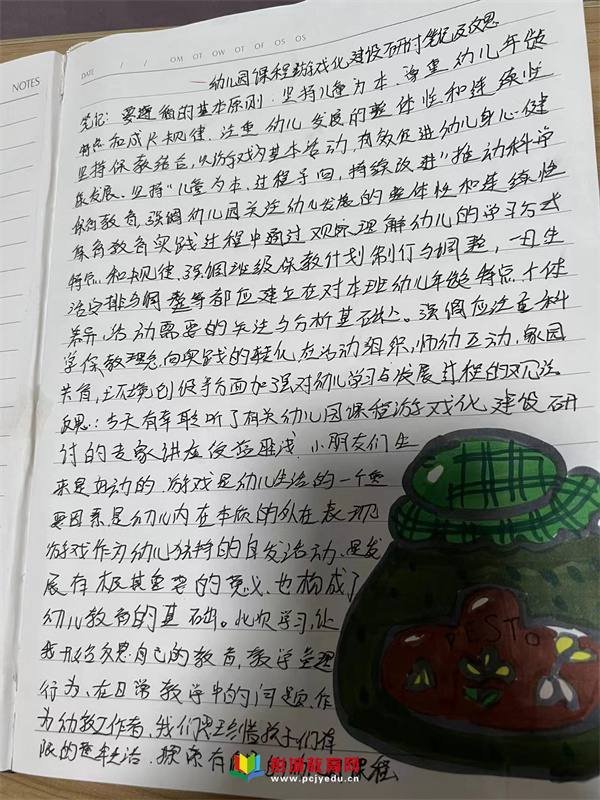 NOTES
DATE / / MON OT OW OT OF OS OS
幼儿园课程游戏化建设研讨笔记及反思
笔记: 要遵循的基本原则: 坚持儿童为本. 尊重幼儿年龄
特点和成长规律, 注重幼儿发展的整体性和连续性
坚持保教结合, 以游戏为基本活动, 有效促进幼儿身心健
康发展. 坚持"儿童为本, 过程导向, 持续改进"推动科学
保育教育. 强调幼儿园关注幼儿发展的整体性和连续性
保育教育实践过程中通过观察理解幼儿的学习方式
特点和规律. 强调班级保教计划制订与调整, 一日生
活安排与调整等都应建立在对本班幼儿年龄特点个体
差异, 活动需要的关注与分析基础上。强调应注重科
学保教理念向实践的转化在活动组织, 师幼互动, 家园
共育, 环境创设等方面加强对幼儿学习与发展过程的观注。
反思: 今天有幸聆听了有关幼儿园课程游戏化建设研
讨的专家讲座受益匪浅. 小朋友们生
来是好动的, 游戏是幼儿生活的一个重
要因素是幼儿内在本质的外在表现
游戏作为幼儿独特的自发活动, 是发
展有极其重要的意义, 也构成了
幼儿教育的基础。此次学习, 让
我开始反思自己的教育, 教学管理
行为, 在日常教学中的问题, 作
为幼教工作者, 我们要珍惜孩子们有
限的童年生活. 探索有 课程
PESTO
教育网
www.pcjyedu.cn